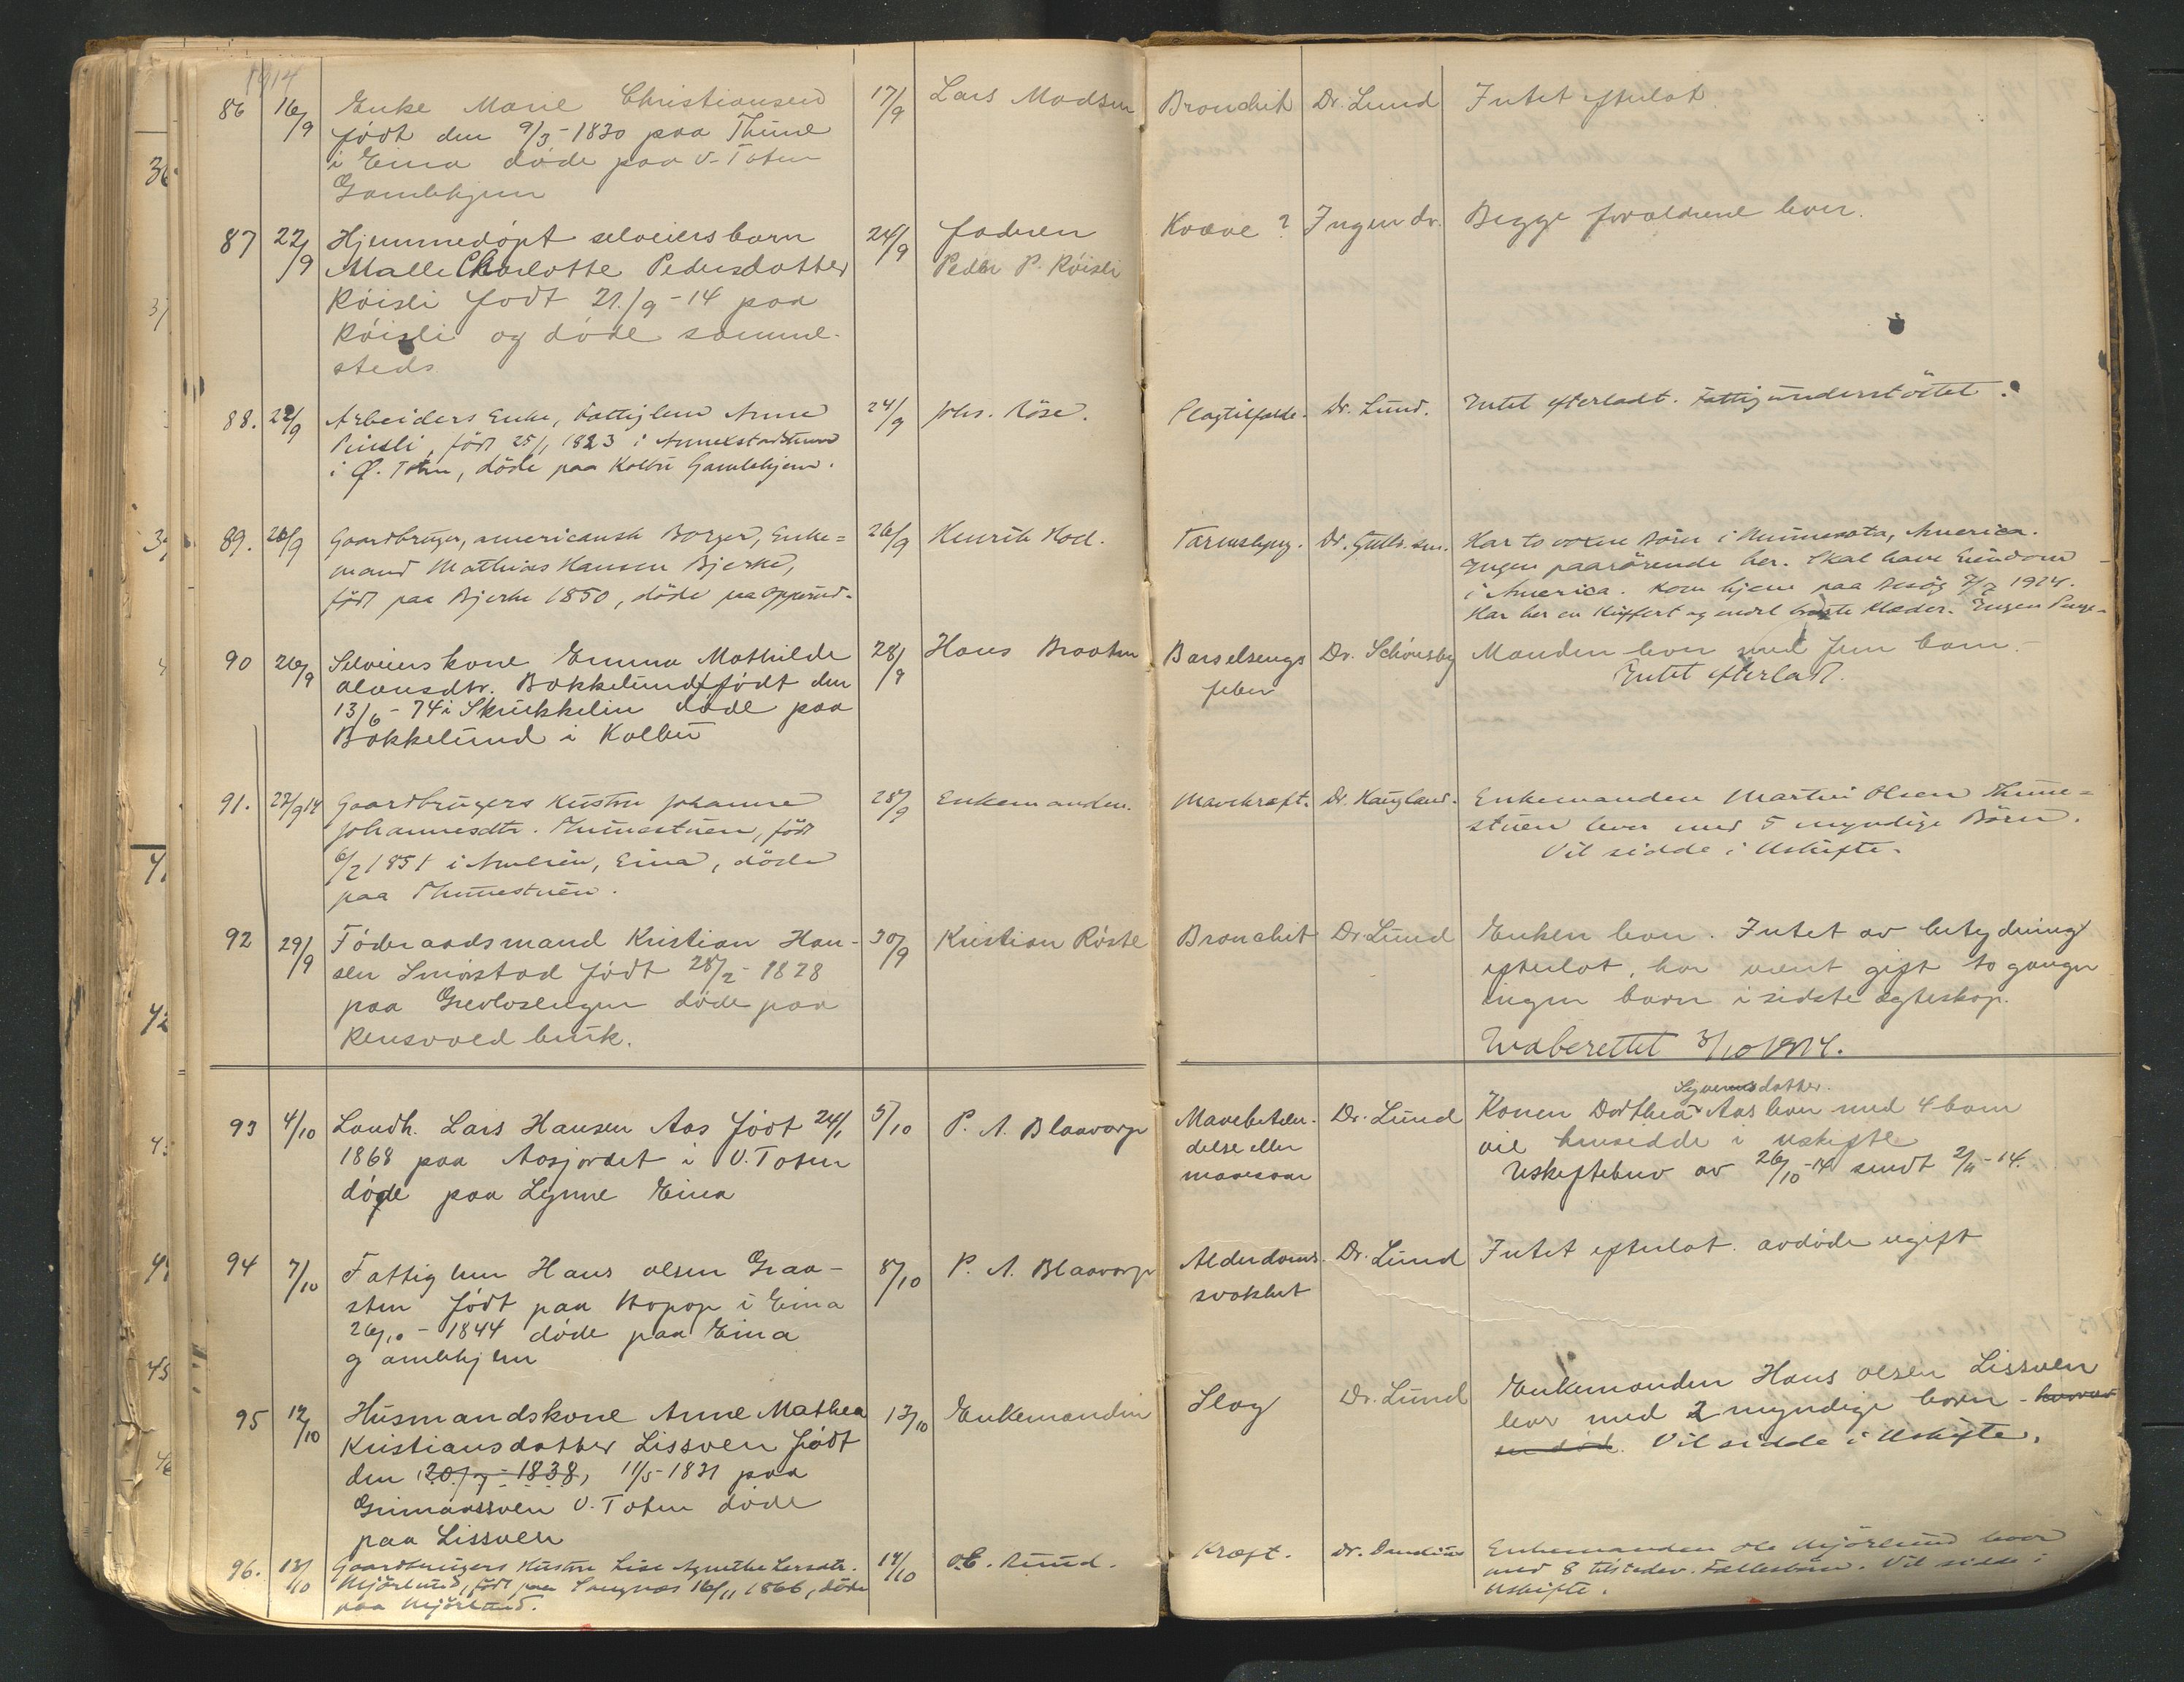 1914
86 16/9 Enke Marie Christiansen 17/9 Lars Madsen Bronchit Dr. Lund Intet efterlat
født den 9/3-1830 paa Thune
i Eina døde paa V-Toten
Gamlehjem
87 22/9 Hjemmedøpt selveiersbarn 24/9 faderen Kvæve? Ingen dr. Begge forældrene lever.
Malle Charlotte Pedersdatter Peder P. Røisli
Røisli født 21./9-14 paa
Røisli og døde samme-
steds
88. 22/9 Arbeiders Enke, Fattiglem Anne 24/9 Johs. Röse. Slagtilfælde. Dr. Lund. Intet efterladt. Fattigunderstöttet.
født 25/1 1823 i
i Ø. Toten, döde paa Kolbu Gamlehjem.
89. 20/9 Gaardbruger, americansk Borger, Enke= 26/9 Henrik Hoel. Tarmslyng. Dr. Har to voxne Börn i Minnesota, America.
mand Mathias Hansen Bjerke, Ingen paarörende her. Skal have Eiendom
født paa Bjerke 1850, döde paa i America. Kom hjem paa Besög 7/7 1914.
Har her en Kuffert og endel brugte Klæder. Ingen Penge.
90 26/9 Selveierskone Emma Mathilde 28/9 Hans Braaten Barselsengs Dr. Schönsby Manden lever med fem barn.
Olausdtr. Bakkelund født den feber Intet efterladt.
13/6-74 i Skrukkelien døde paa
Bakkelund i Kolbu
91. 27/9 14 Gaardbrugers Kustru Johanne 28/9 Enkemanden. Mavekræft. Dr. Haugland. Enkemanden Martin Olsen Thune=
Johannesdtr. Thunestuen, født stuen lever med 5 myndige Börn.
6/2 1851 i Eina, döde Vil sidde i Uskifte.
paa Thunestuen.
92 29/9 Føderaadsmand Kristian Han- 30/9 Kristian Røste Bronchit Dr. Lund Enken lever. Intet av betydning
sen Smørstad født 28/2-1828 efterlat, har været gift to ganger
paa Grevlosengen døde paa ingen barn i sidste egteskap.
Rensvold bruk. Indberettet 3/10 1914.
93 4/10 Landh. Lars Hansen Aas født 24/1 5/10 P. A. Blaavarp Mavebeten- Dr. Lund Konen Dorthea Syversdatter. Aas lever med 4 barn
1868 paa Aasjordet i V. Toten delse eller vil hensidde i uskifte
døde paa Lynne Eina mavesaar Uskiftebev av 26/10-14 sendt 2/11-14.
94 7/10 Fattiglem Hans Olsen Graa- 8/10 P. A. Blaavarp Alderdoms- Dr. Lund Intet efterlat. avdøde ugift
sten født paa Hopop i Eina svakhet
26/10-1844 døde paa Eina
gamlehjem
95 12/10 Husmandskone Anne Mathea 13/10 Enkemanden Slag Dr. Lund Enkemanden Hans Olsen Lissveen
Kristiansdatter Lissveen født lever med 2 myndige barn - hvorav
den 20./7-1838, 11/5-1831 paa en død. Vil sidde i Uskifte.
Grimaassveen V. Toten døde
paa Lissveen
96. 13/10 Gaardbrugers Kustru Lise Agnethe Larsdtr. 14/10 O.E. Ruud. Kræft. Dr. Enkemanden Ole Mjörlund lever
Mjörlund, født paa Sangnæs 16/11 1866, döde med 8 Fællesbörn. Vil sidde i
paa Mjörlund. Uskifte.